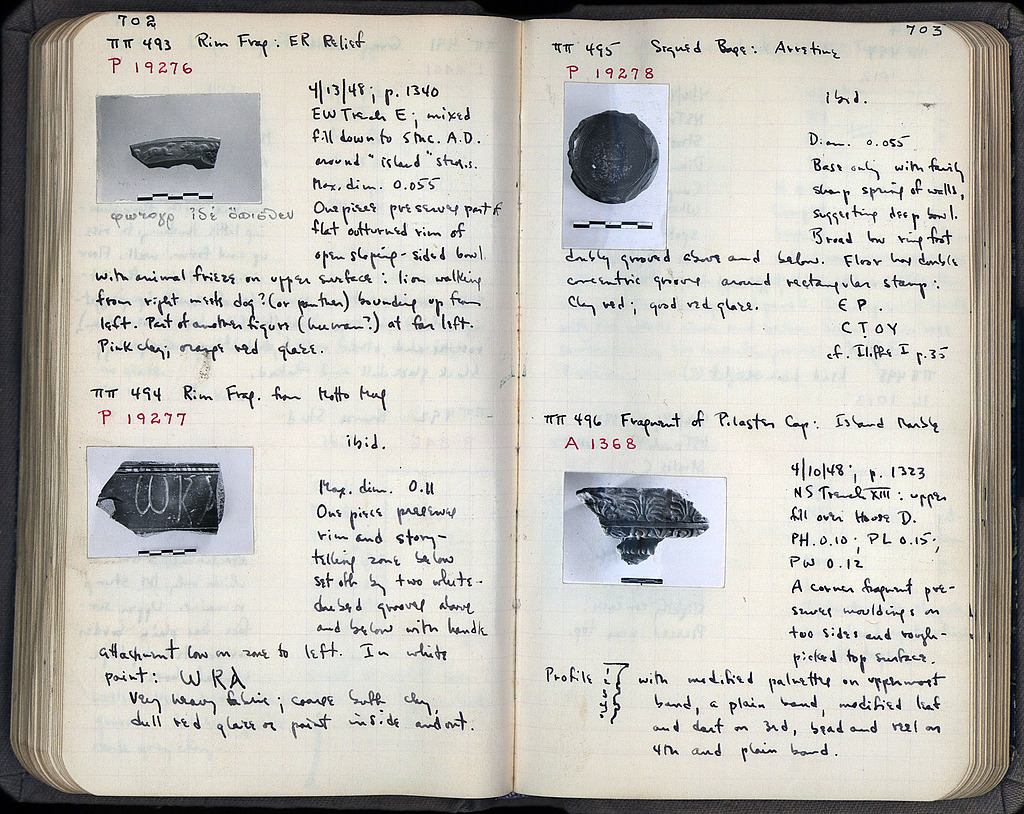 702
ΠΠ 493 Rim Frag: ER Relief
P 19276
4/13/48; p. 1340
EW Trench E; mixed
fill down to 5th c. A.D.
around "island"
Max. dim. 0.055
One piece preserves part of
flat outturned rim of
open sloping-sided bowl.
with animal frieze on upper surface: lion walking
from right meets dog? (or panther) bounding up from
left. Part of another figure (human?) at far left.
Pink clay, orange red glaze.
ΠΠ 494 Rim Frag. from Motto Mug
P 19277
ibid.
Max. dim. 0.11
One piece preserves
rim and story-
telling zone below
set off by two white-
daubed grooves above
and below with handle
attachment low on zone to left. In white
paint: WKA
Very heavy fabric; coarse buff clay,
dull red glaze or paint inside and out.
703
ΠΠ 495 Signed Base: Arretine
P 19278
ibid.
Diam. 0.055
Base only with fairly
sharp spring of walls,
suggesting deep bowl.
Broad low ring foot
doubly grooved above and below. Floor has double
concentric groove around rectangular stamp:
Clay red; good red glaze.
ΕΡ.
CΤΟΥ
cf. Iliffe I p. 35
ΠΠ 496 Fragment of Pilaster Cap: Island Marble
A 1368
4/10/48; p. 1323
NS Trench XIII: upper
fill over House D.
PH. 0.10; PL 0.15;
PW 0.12
A corner fragment pre-
serves mouldings on
two sides and rough-
picked top surface.
Profile with modified palmettes on uppermost
band, a plain band, modified leaf
and dart on 3rd, bead and reel on
4th and plain band.